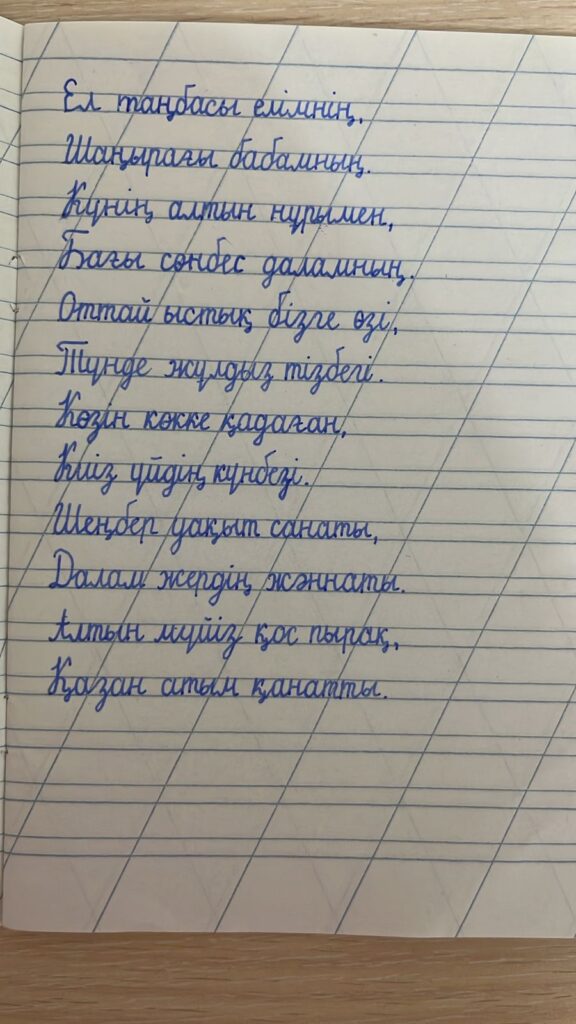 Ел таңбасы елімнің,
Шаңырағы бабамның.
Күнің алтын нұрымен,
Бағы сөнбес даламның.
Оттай ыстық бізге өзі,
Түнде жұлдыз тізбегі.
Көзін көкке қадаған,
Киіз үйдің күнбезі.
Шеңбер уақыт санаты,
Далам жердің жәннаты.
Алтын мүйіз қос пырақ,
Қазан атым қанатты.